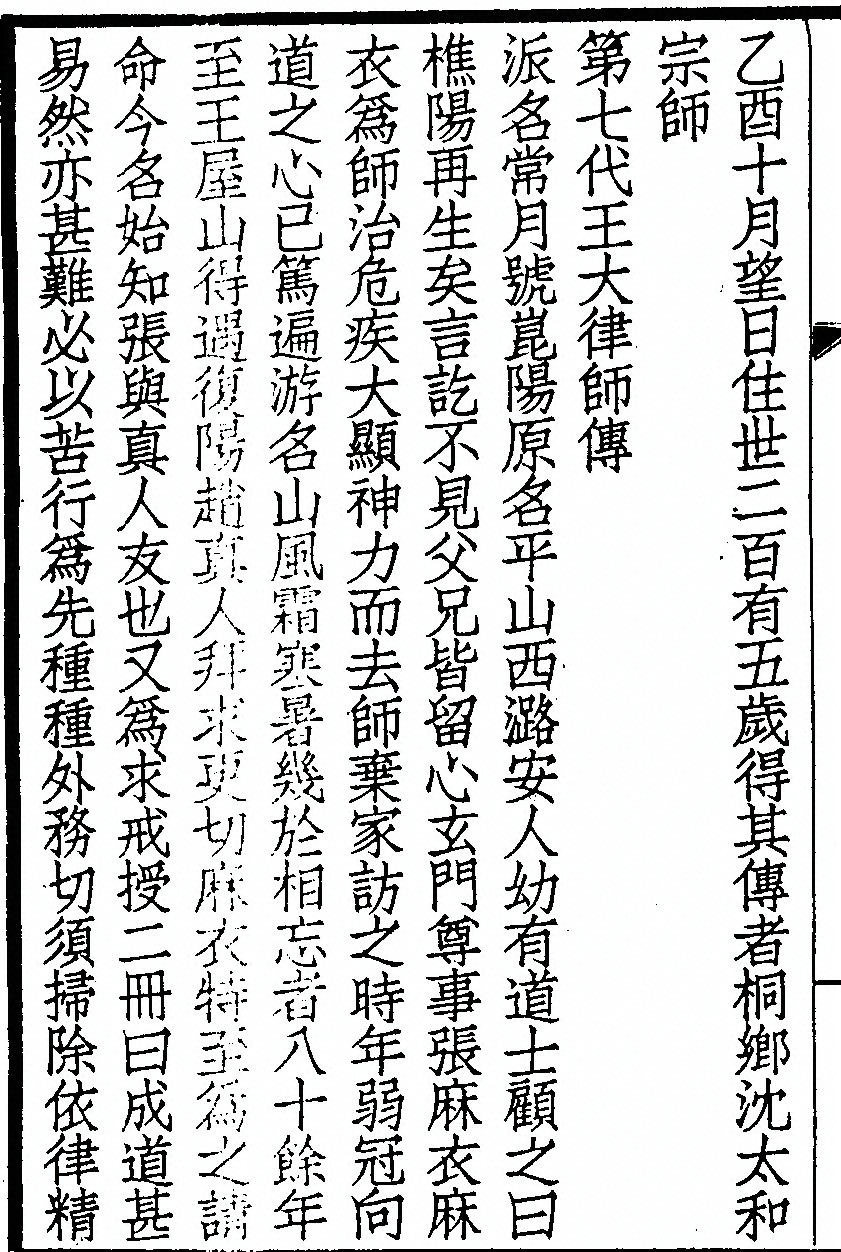 乙酉十月望日住世二百有五歲得其傳者桐鄉沈太和
宗師
第七代王大律師傳
派名常月號崑陽原名平山西潞安人幼有道士顧之曰
樵陽再生矣言訖不見父兄皆留心玄門尊事張麻衣麻
衣爲師治危疾大顯神力而去師棄家訪之時年弱冠向
道之心已篤遍游名山風霜寒暑幾於相忘者八十餘年
至王屋山得遇復陽趙真人拜求更切麻衣特至爲之請
命今名始知張與真人友也又爲求戒授二冊曰成道甚
易然亦甚難必以苦行爲先種種外務切須掃除依律精